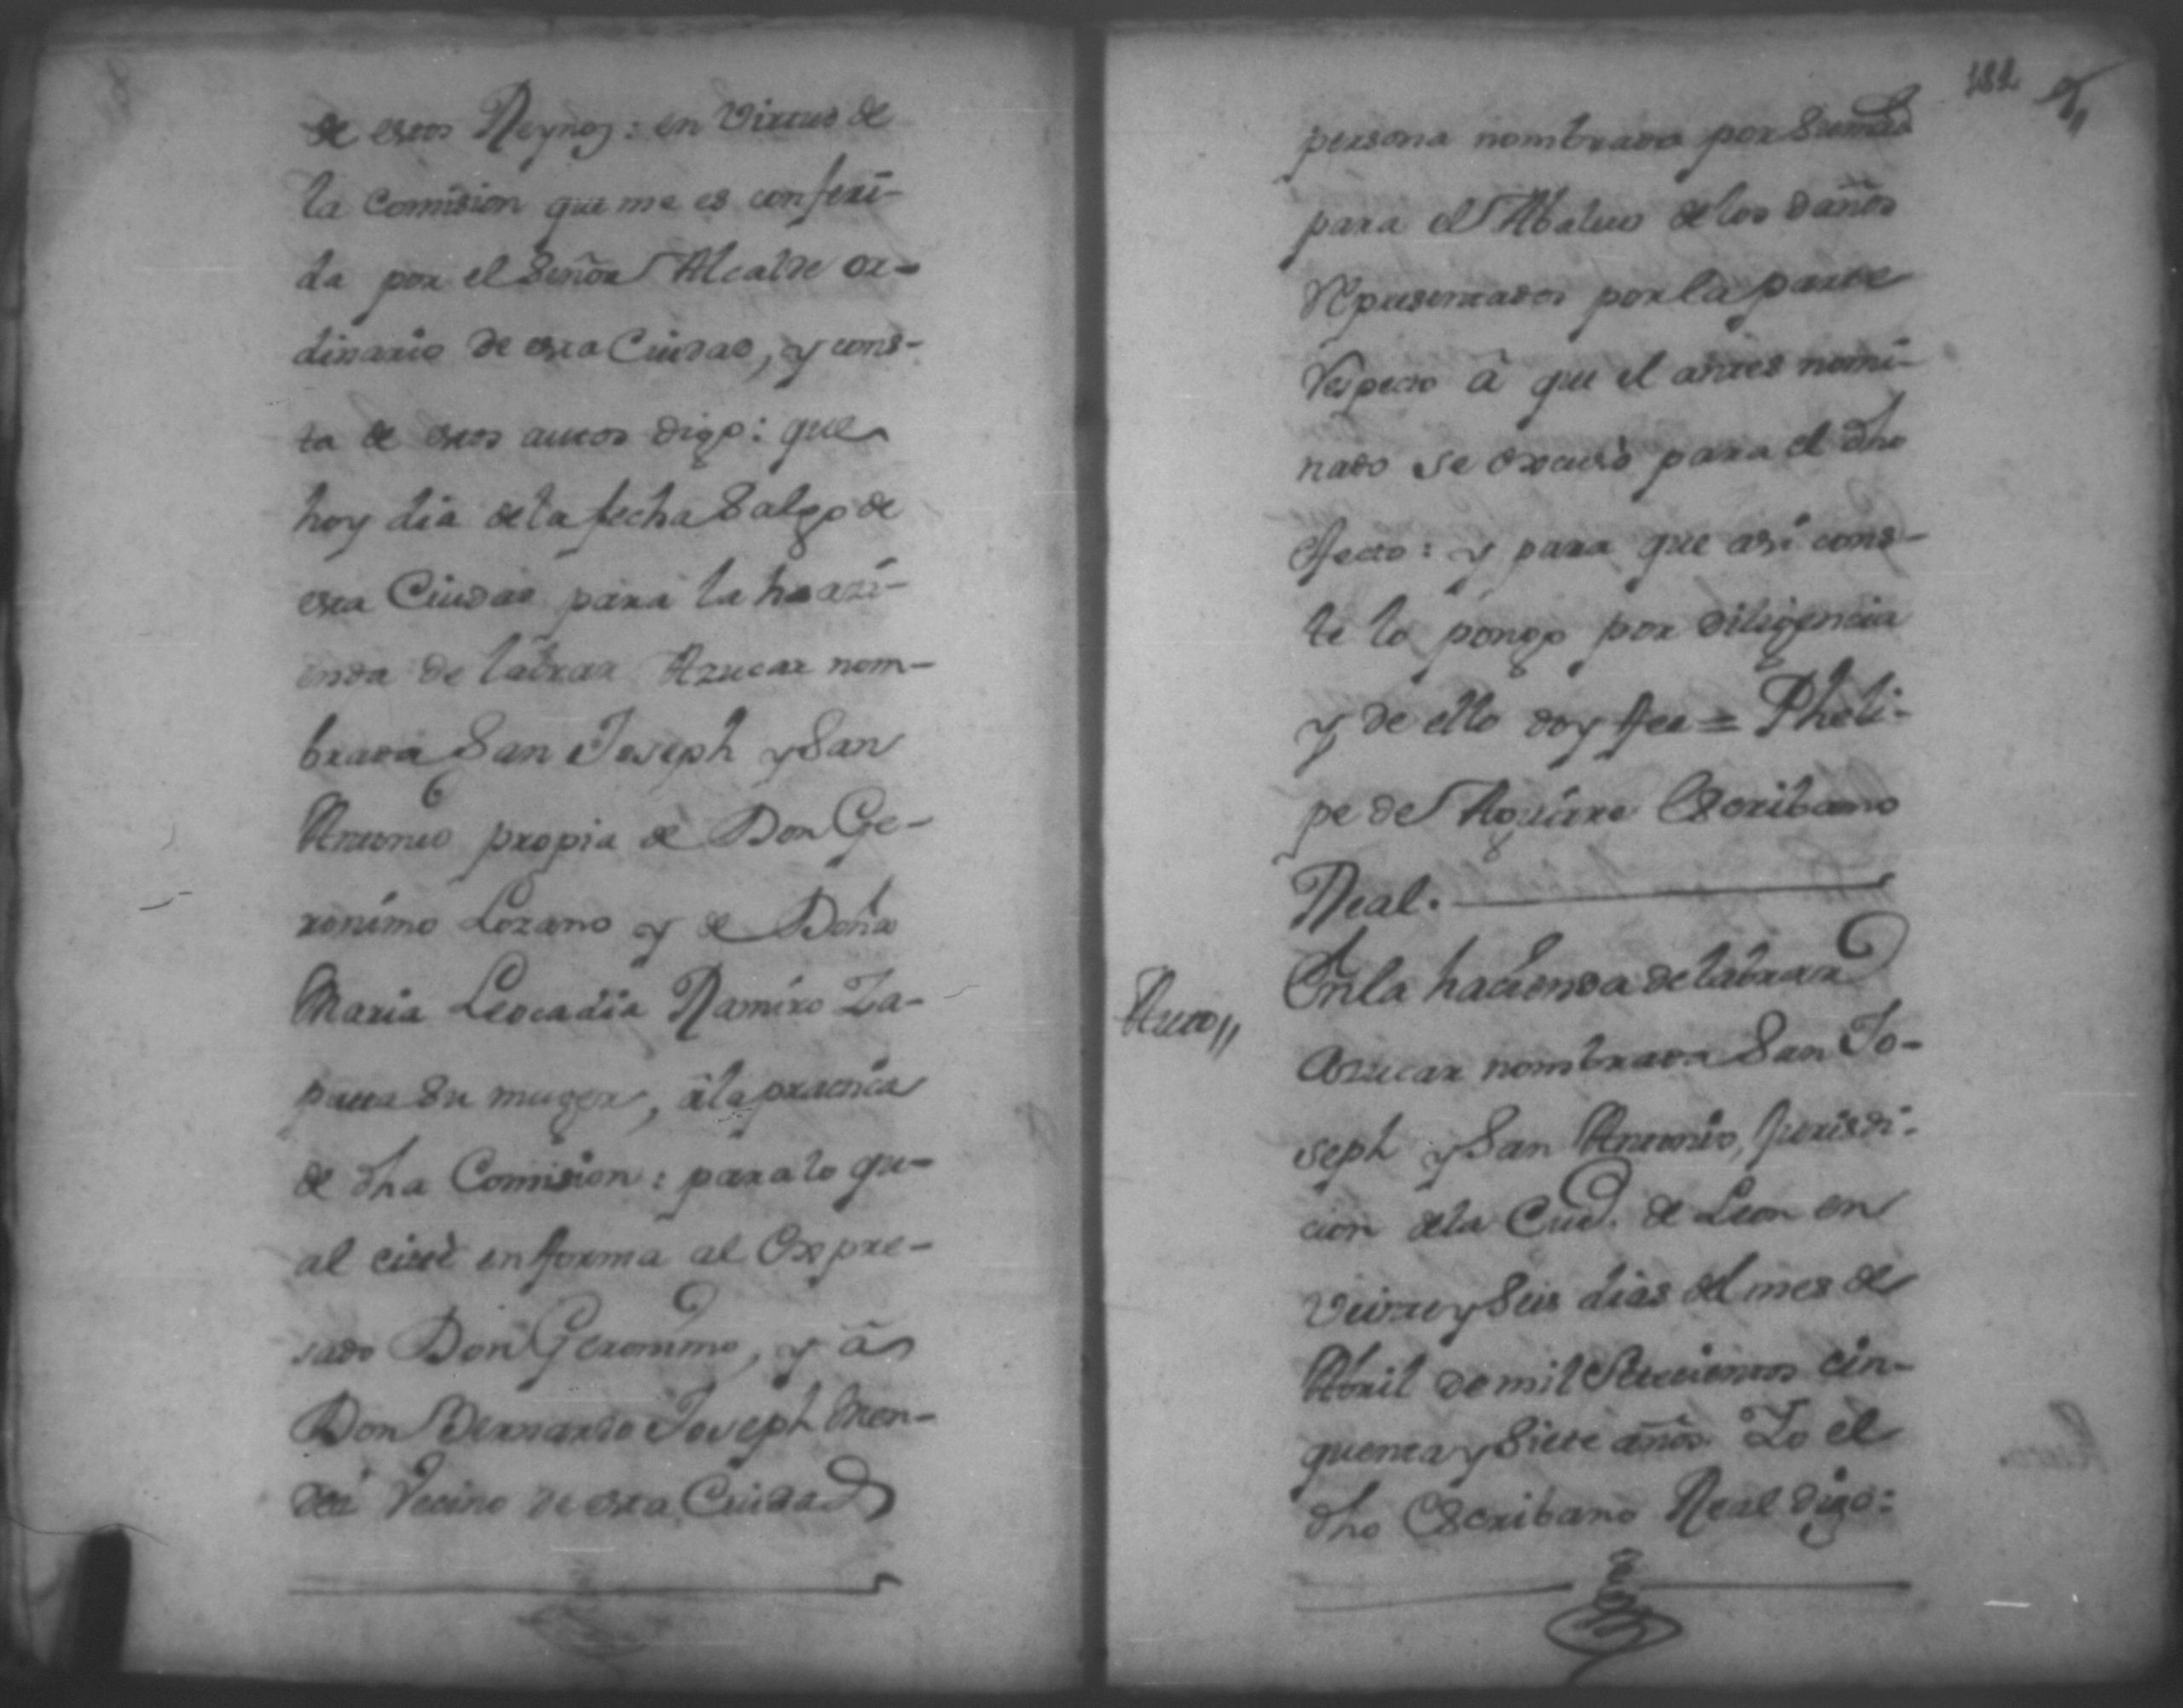 de estos Reynos: en Virtud de
la Comision que me es conferi-
da por el Señor Alcalde or-
dinario de esta Ciudad, y cons-
ta de estos autos digo: que
hoy dia de la fecha Salgo de
esta Ciudad para la hazi-
enda de labrar Azucar nom-
brada San Joseph y San
Antonio propia de Don Ge-
ronimo Lozano y de Doña
Maria Leocadia Ramiro Za-
pata su muger, â la practica
de dha Comision: para lo qu-
al cité en forma al Expre-
sado Don Geronimo, y â
Don Bernardo Joseph Men-
dez Vecino de esta Ciudad
182
persona nombrada por Sumrd
para el Abaluo de los daños
Representados por la parte
Respecto â que el antes nomi-
nado se excusò para el dho
efecto: y para que asi cons-
te lo pongo por diligencia
y de ello doy fee = Pheli-
pe de Aguirre Escribano
Real.
Auto,,
En la hacienda de labrar
Azucar nombrada San Jo-
seph y San Antonio, Jurisdi-
cion de la Ciud. de Leon en
Veinte y Seis dias del mes de
Abril de mil Setecientos cin-
quenta y Siete años Yo el
dho Escribano Real digo: